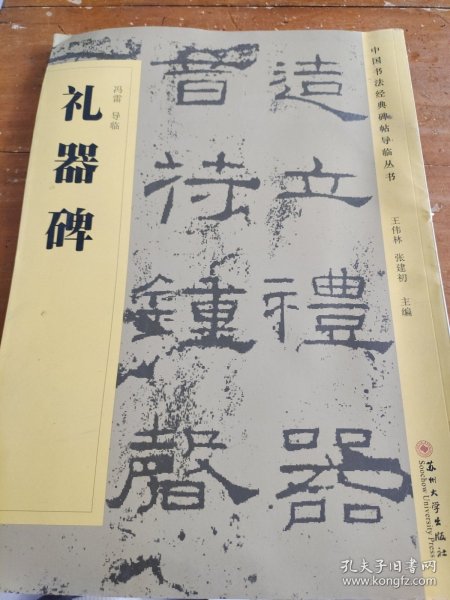 礼器碑
冯雷 导临
造立禮器
音苻鍾磬
中国书法经典碑帖导临丛书
王伟林 张建初 主编
苏州大学出版社
Soochow University Press
孔夫子旧书网
www.kongfz.com